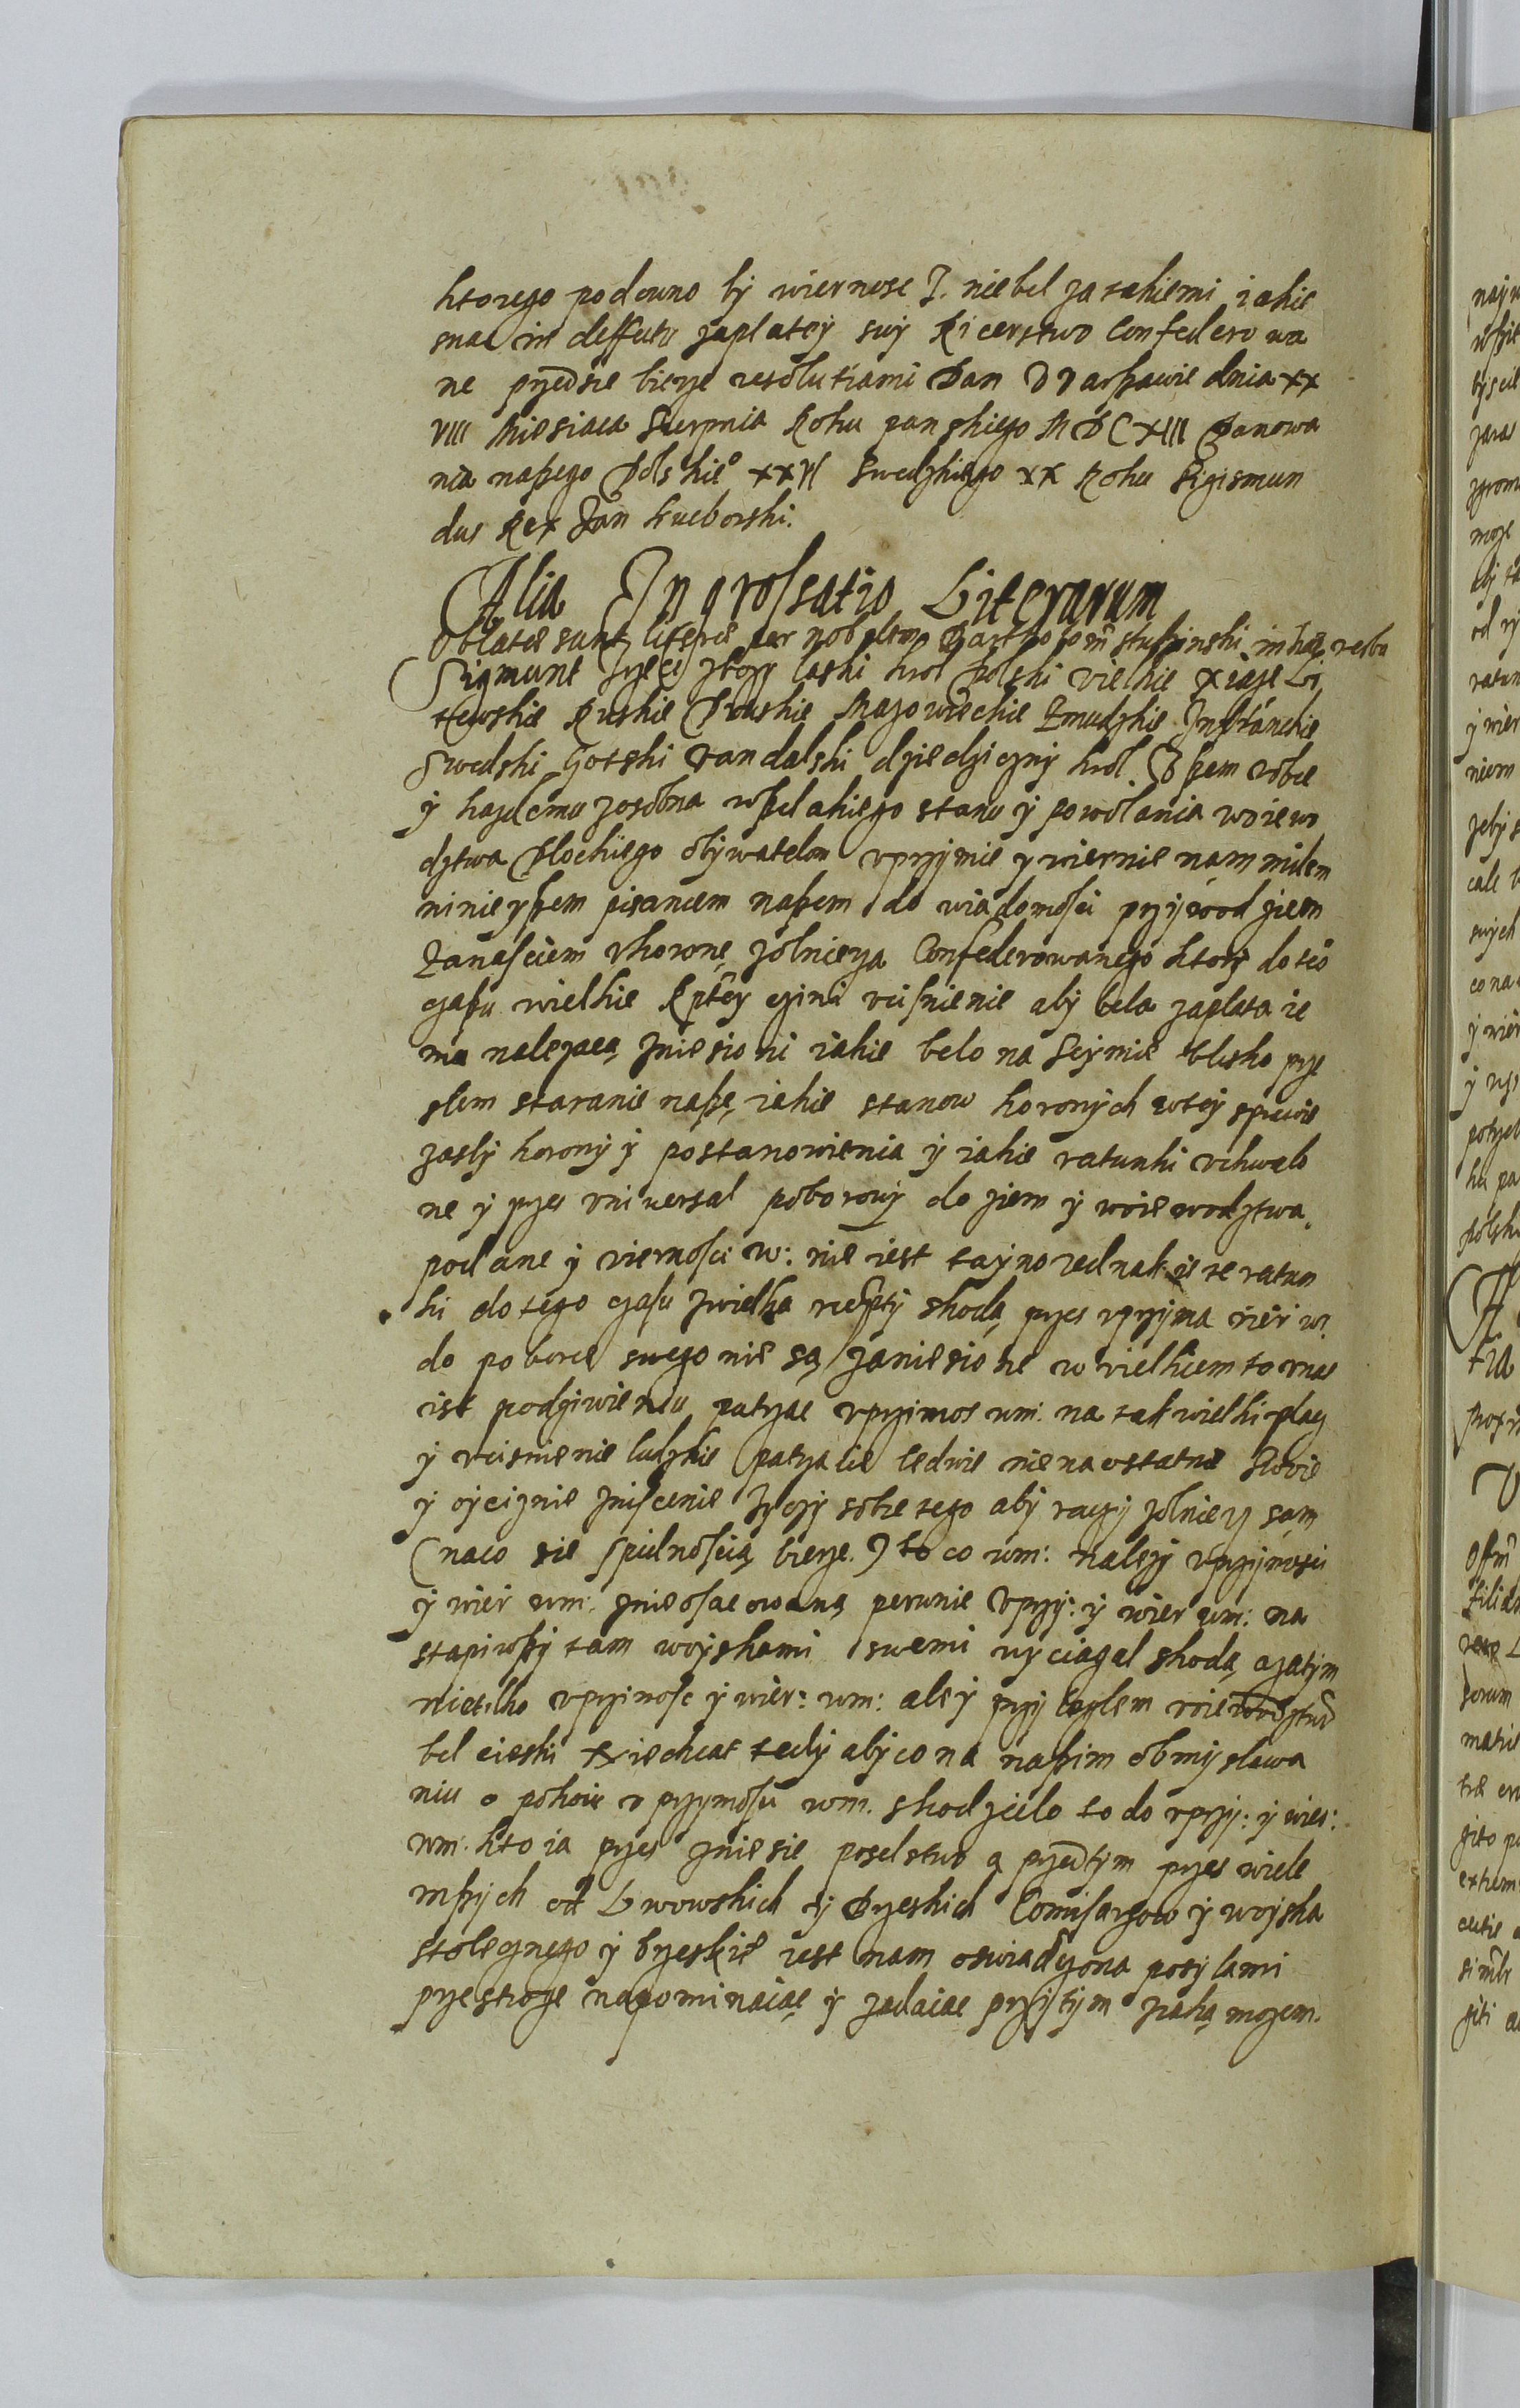 ktorego podowno by wiernosc J. nie bel za takiemi iakie
sma in deffectu zaplatey swy Ricerstwo Confedero wa
ne przedsie bierze resolutiami Dan V Varszawie dnia xx
VIII Miesiaca Sierpnia Roku panskiego M D C XIII Panowa
nia naszego Polskieo xxVI Swedzkiego xx Roku Sigismun
dus Rex Jan kucborski.
Alia Ingrossatio Literarum
Oblatae sunt literae per nobilem Barthołom̃ in haec verba
Sigmunt Trzeci z bozy laski krol Polski vielkie xiąze Li
tewskie Ruskie Pruskie Mazowieckie Zmudzkie Inflanckie
Swedski Gotski Vandalski dziedziczny krol. Wszem wobec
y kazdemu zosobna wszelakiego stanu y powolania woiewo
dztwa Plockiego obywatelom vprzymie y wiernie nam milem
ninieyszem pisaniem naszem do wiadomosci przywodziem
Zanasciem vkorone zolnierza Confederowanego ktory do teo
czasu wielkie Rptey czini vcisnienie aby bela zaplata ie
mu nalezaca zniesioni iakie belo na Seymie blisko prze
slem staranie nasze iakie stanow koronych wtey sprawie
zasly korony y postanowienia y iakie ratunki vchwalo
ne y przes vniversal poborowy do ziem y woiewodztwa
podane y viernosci w: nie iest tayno iednak ze te ratun
ki do tego czasu zwielka rzeptey skoda przes vprzyma vier w:
do poborce swego nie są zaniesione w wielkiem to v nas
ist podziwieniu patrzac vprzimos wm: na tak wielki placz
y vcisnienie ludzkie patrzacie ledwie nie na ostatnie Slovie
y oyciznie zniscenie zyczy sobie tego aby raczy zolnierz sam
(naco sie spilnoscia bierze.) to co wm: nalezy vprzymosci
y wier wm: pewnie vprzy: y wier wm: na
stapiwszy tam woyskami swemi wyciagal skodą azatym
nietilko vprzimosc y wier: wm: ale y przy leglem woiewodztwō
bel cieski nie chcac tedy aby co na naszim obmyslawa
niu o pokoiu vprzymosci wm. skodzielo to do vprzy: y wier:
wm. kto ia przes zniesie poselstwo a przedtym przes wiele
inszych od Lwowskich y Brzeskich Comisarzow y woyska
stolecznego y brzeskie iest nam oswiadczona posylami
przestroge napominaiac y zadaiac przytym iaką mozem.